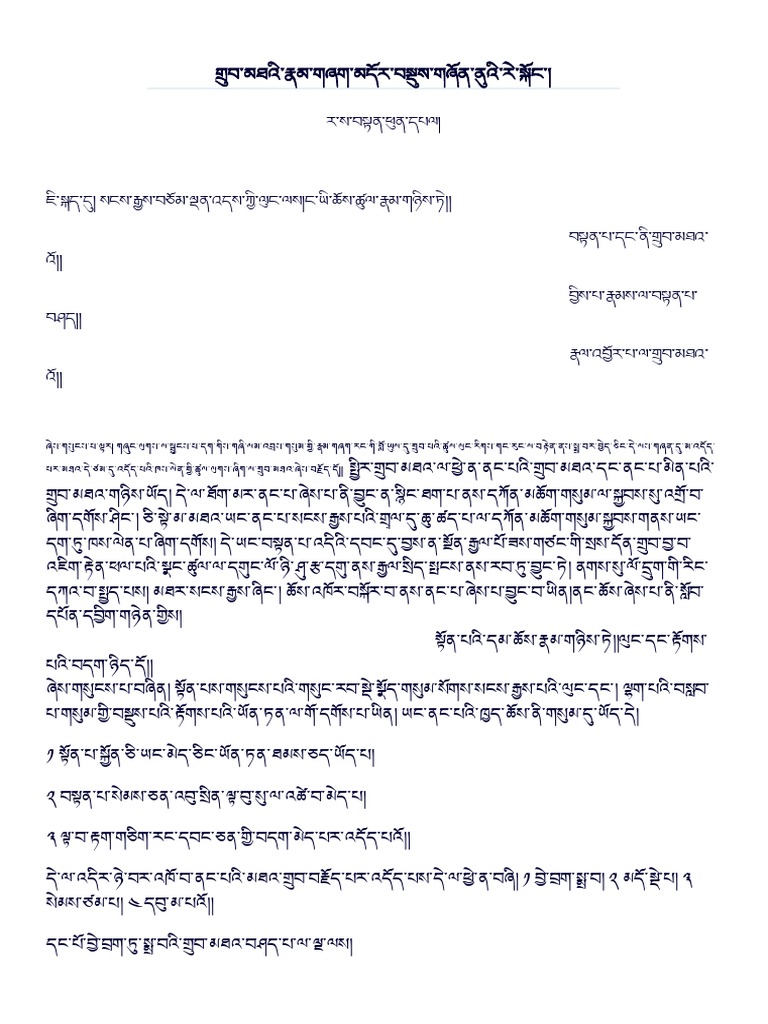 གྲུབ་མཐའི་རྣམ་གཞག་མདོར་བསྡུས་གཞོན་ནུའི་རེ་སྐོང་།
ར་ས་བསྟན་ཕུན་དཔལ།
ཇི་སྐད་དུ། སངས་རྒྱས་བཅོམ་ལྡན་འདས་ཀྱི་ལུང་ལས།ང་ཡི་ཆོས་ཚུལ་རྣམ་གཉིས་ཏེ།།
བསྟན་པ་དང་ནི་གྲུབ་མཐའ་
འོ།།
བྱིས་པ་རྣམས་ལ་བསྟན་པ་
བཤད།།
རྣལ་འབྱོར་པ་ལ་གྲུབ་མཐའ་
འོ།།
ཞེས་གསུངས་པ་ལྟར། གཞུང་ལུགས་ལ་སྦྱངས་པ་དག་གིས་གཞི་ལམ་འབྲས་གསུམ་གྱི་རྣམ་གཞག་རང་གི་བློ་ཡུལ་དུ་གྲུབ་པའི་ཚུལ་ལུང་རིགས་གང་རུང་ལ་བརྟེན་ནས་སྨྲ་བར་བྱེད་ཅིང་དེ་ལས་གཞན་དུ་མ་འདོད་
པར་མཐའ་དེ་ཙམ་དུ་འདོད་པའི་ཁས་ལེན་གྱི་ཚུལ་ལུགས་ཞིག་ལ་གྲུབ་མཐའ་ཞེས་བརྗོད་དོ།། སྤྱིར་གྲུབ་མཐའ་ལ་ཕྱེ་ན་ནང་པའི་གྲུབ་མཐའ་དང་ནང་པ་མིན་པའི་
གྲུབ་མཐའ་གཉིས་ཡོད། དེ་ལ་ཐོག་མར་ནང་པ་ཞེས་པ་ནི་བྱུང་ན་སྙིང་ཐག་པ་ནས་དཀོན་མཆོག་གསུམ་ལ་སྐྱབས་སུ་འགྲོ་བ་
ཞིག་དགོས་ཤིང་། ཅི་སྟེ་མ་མཐའ་ཡང་ནང་པ་སངས་རྒྱས་པའི་གྲལ་དུ་ཆུ་ཚད་པ་ལ་དཀོན་མཆོག་གསུམ་སྐྱབས་གནས་ཡང་
དག་ཏུ་ཁས་ལེན་པ་ཞིག་དགོས། དེ་ཡང་བསྟན་པ་འདིའི་དབང་དུ་བྱས་ན་སྔོན་རྒྱལ་པོ་ཟས་གཙང་གི་སྲས་དོན་གྲུབ་བྱ་བ་
འཇིག་རྟེན་ཕལ་པའི་སྣང་ཚུལ་ལ་དགུང་ལོ་ཉི་ཤུ་རྩ་དགུ་ནས་རྒྱལ་སྲིད་སྤངས་ནས་རབ་ཏུ་བྱུང་ཏེ། ནགས་སུ་ལོ་དྲུག་གི་རིང་
དཀའ་བ་སྤྱད་པས། མཐར་སངས་རྒྱས་ཞིང་། ཆོས་འཁོར་བསྐོར་བ་ནས་ནང་པ་ཞེས་པ་བྱུང་བ་ཡིན།ནང་ཆོས་ཞེས་པ་ནི་སློབ་
དཔོན་དབྱིག་གཉེན་གྱིས།
སྟོན་པའི་དམ་ཆོས་རྣམ་གཉིས་ཏེ།།ལུང་དང་རྟོགས་
པའི་བདག་ཉིད་དོ།།
ཞེས་གསུངས་པ་བཞིན། སྟོན་པས་གསུངས་པའི་གསུང་རབ་སྡེ་སྣོད་གསུམ་སོགས་སངས་རྒྱས་པའི་ལུང་དང་། ལྷག་པའི་བསླབ་
པ་གསུམ་གྱི་བསྡུས་པའི་རྟོགས་པའི་ཡོན་ཏན་ལ་གོ་དགོས་པ་ཡིན། ཡང་ནང་པའི་ཁྱད་ཆོས་ནི་གསུམ་དུ་ཡོད་དེ།
༡ སྟོན་པ་སྐྱོན་ཅི་ཡང་མེད་ཅིང་ཡོན་ཏན་ཐམས་ཅད་ཡོད་པ།
༢ བསྟན་པ་སེམས་ཅན་འབུ་སྲིན་ལྟ་བུ་སུ་ལ་འཚེ་བ་མེད་པ།
༣ ལྟ་བ་རྟག་གཅིག་རང་དབང་ཅན་གྱི་བདག་མེད་པར་འདོད་པའོ།།
དེ་ལ་འདིར་ཉེ་བར་འཁོ་བ་ནང་པའི་མཐའ་གྲུབ་བརྗོད་པར་འདོད་པས་དེ་ལ་ཕྱེ་ན་བཞི། ༡ བྱེ་བྲག་སྨྲ་བ། ༢ མདོ་སྡེ་པ། ༣
སེམས་ཙམ་པ། ༤ དབུ་མ་པའོ།།
དང་པོ་བྱེ་བྲག་ཏུ་སྨྲ་བའི་གྲུབ་མཐའ་བཤད་པ་ལ་ལྔ་ལས།